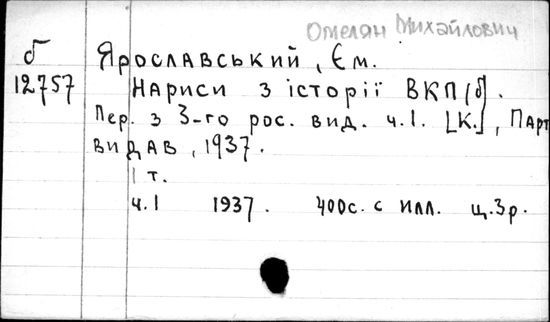 Омелян Михайлович
б
12757
Ярославський, Єм.
Нариси з історії ВКП/б/.
Пер. з 3-го рос. вид. ч.1. [К.], Парт
видав, 1937.
1 т.
ч.1 1937. 400с. с илл. ц.3р.